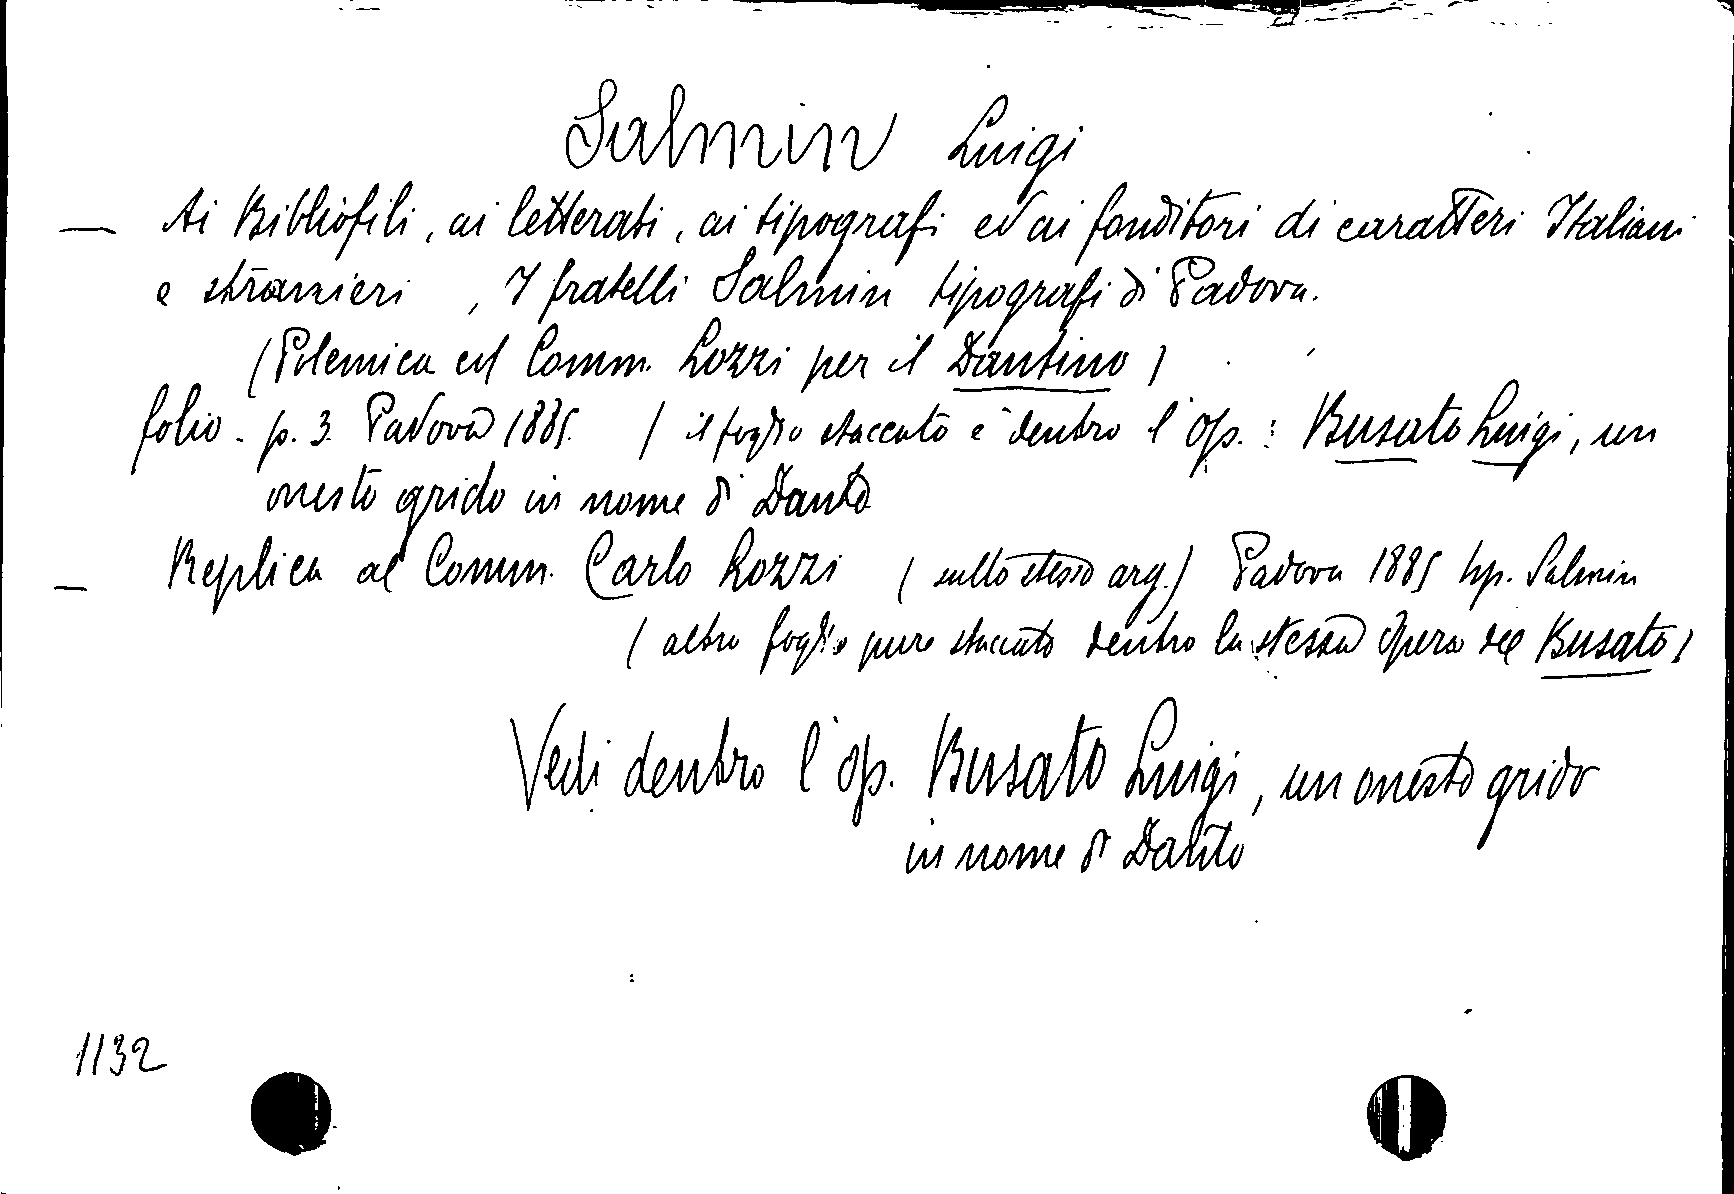 Salmin Luigi
— Ai Bibliofili, ai letterati, ai tipografi ed ai fonditori di caratteri Italiani
e stranieri , I fratelli Salmin tipografi di Padova.
(Polemica col Comm. Lozzi per il Dantino)
folio. p. 3. Padova 1885. ( il foglio staccato è dentro l'op. : Busato Luigi, un
onesto grido in nome di Dante
— Replica al Comm. Carlo Lozzi ( sullo stesso arg.) Padova 1885 tip. Salmin
( altro foglio pure staccato dentro la stessa opera del Busato)
Vedi dentro l'op. Busato Luigi, un onesto grido
in nome di Dante
1132